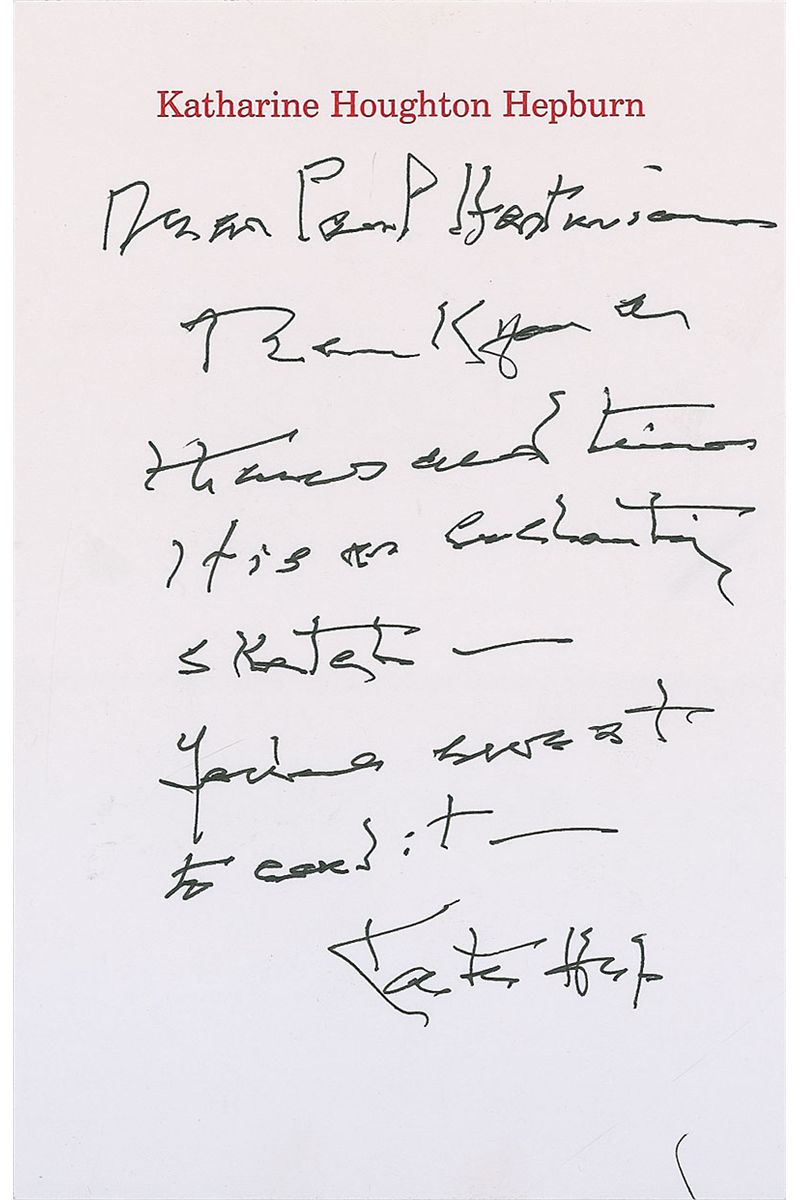 Katharine Houghton Hepburn
Dear Paul
Thank you a
thousand times
It is an enchanting
sketch —
You're sweet
to send it —
Kate Hep